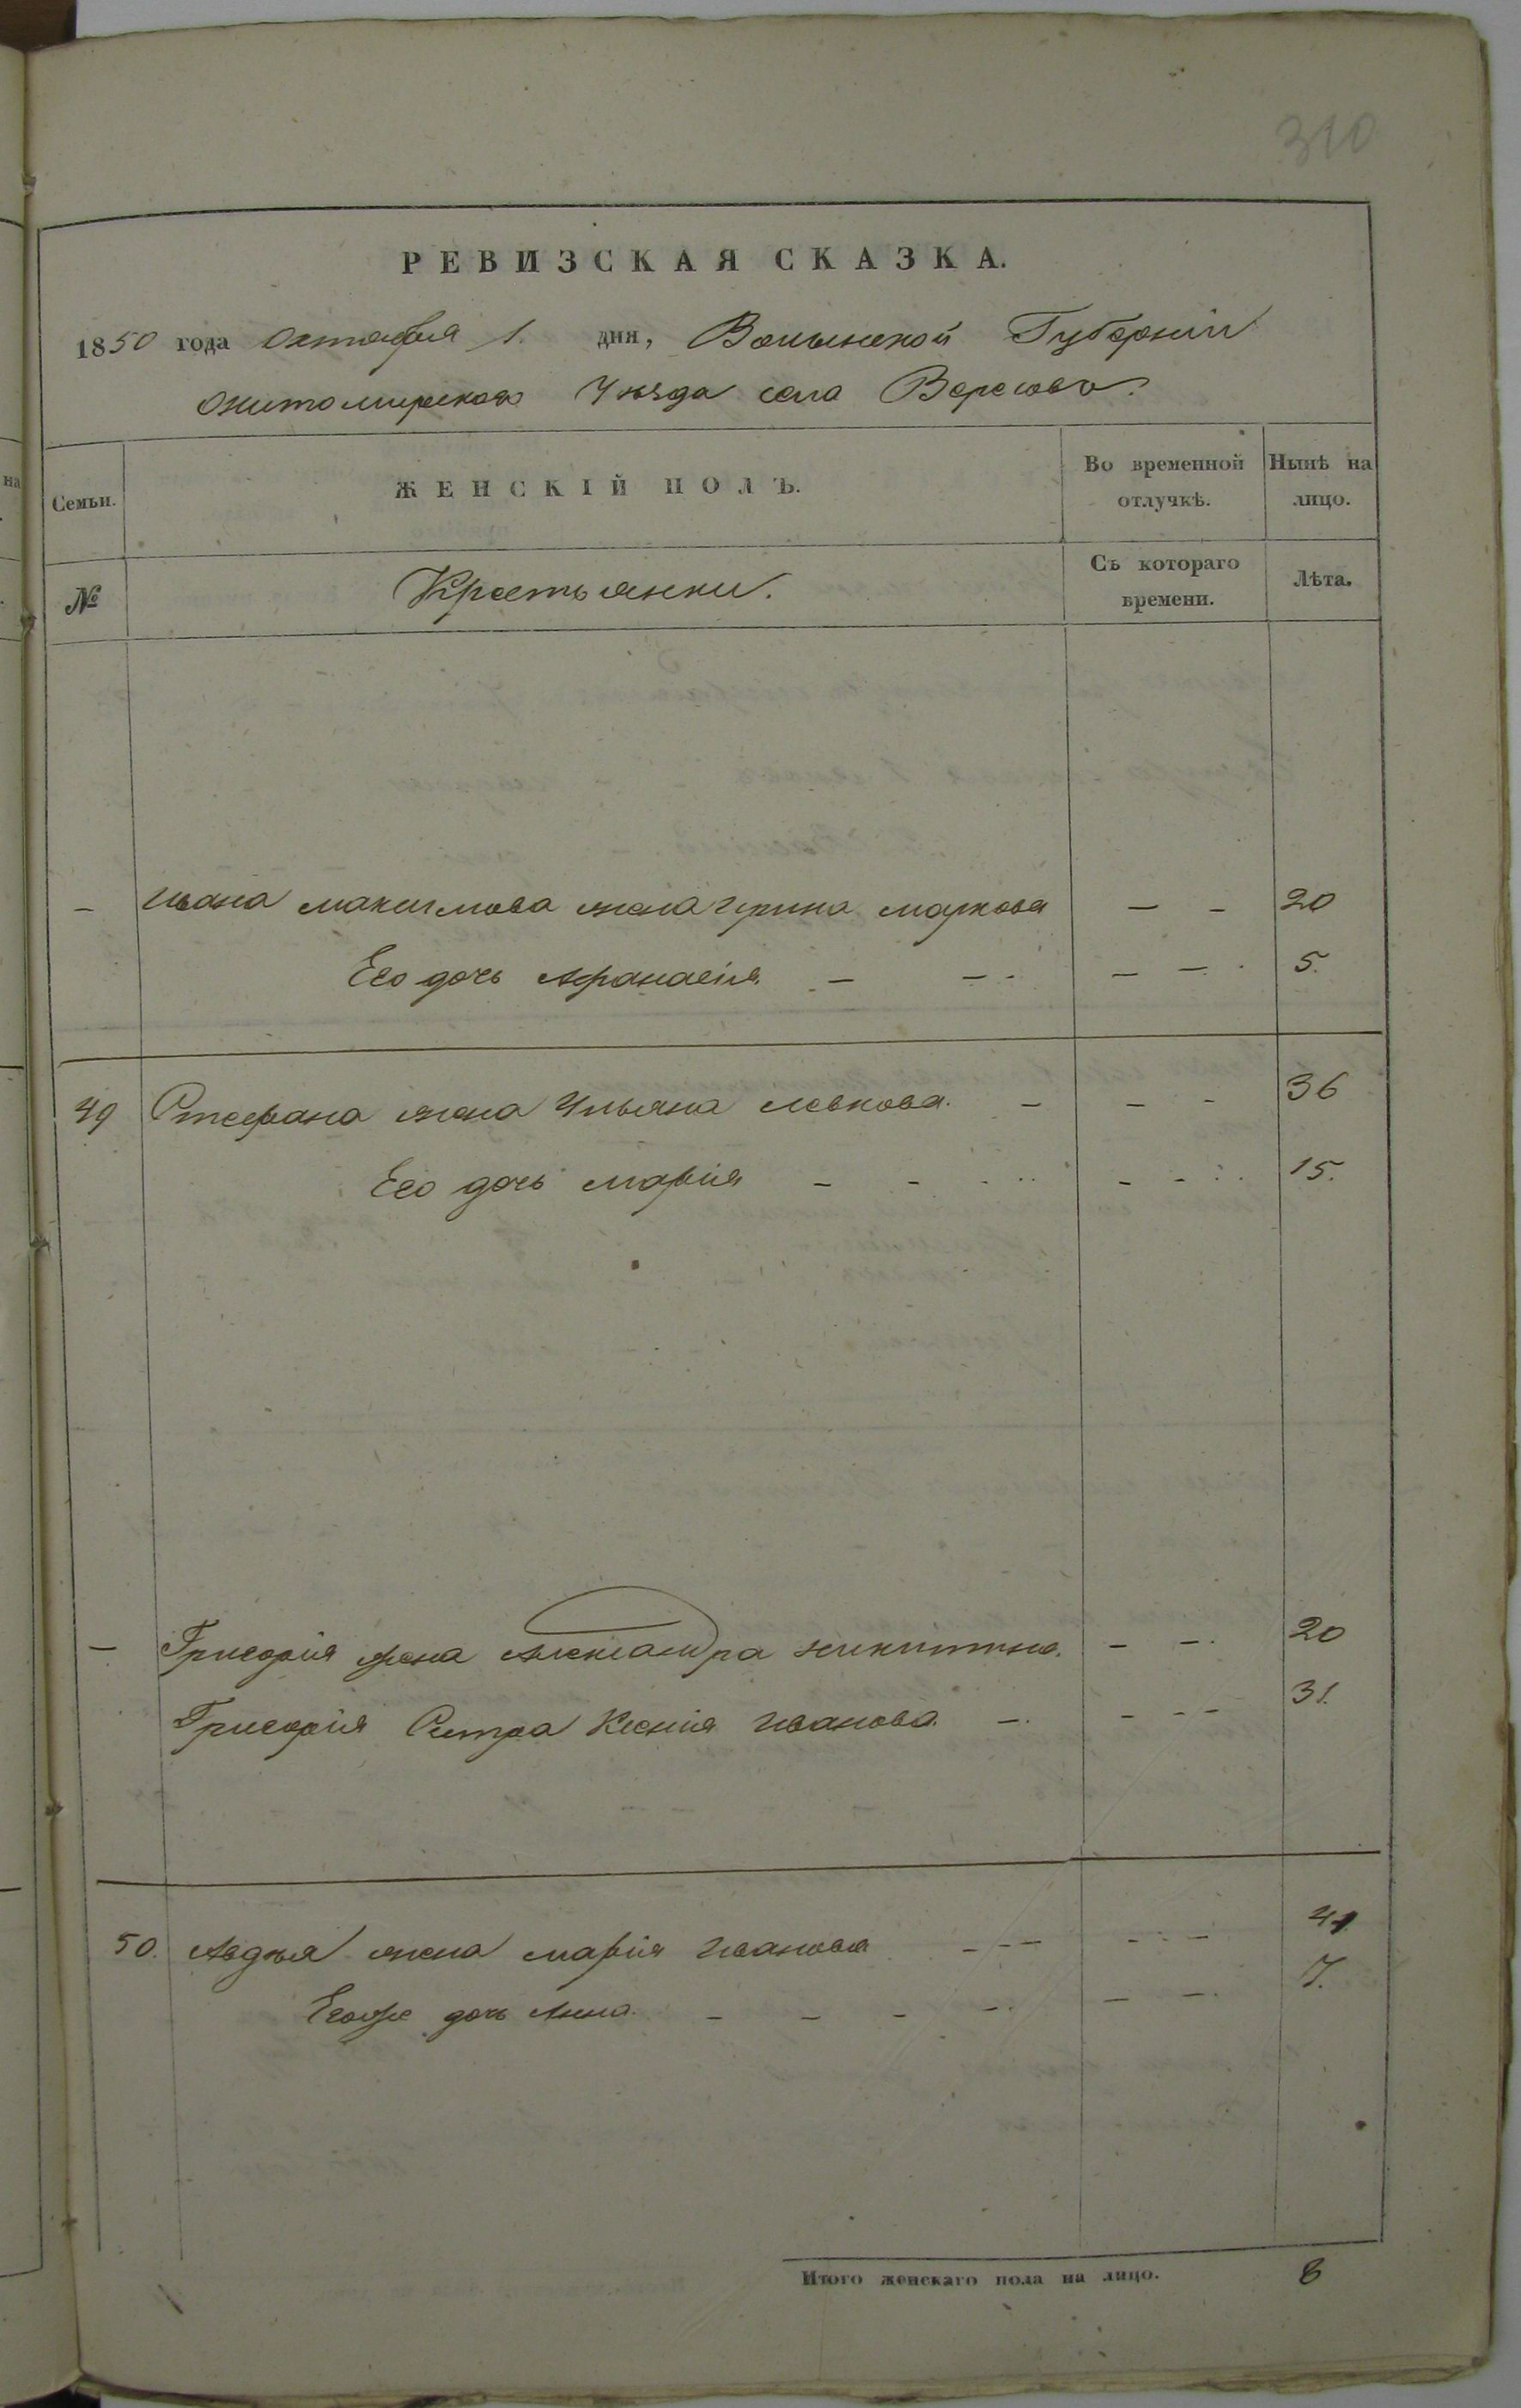 310
РЕВИЗСКАЯ СКАЗКА.
1850 года Октября 1. дня, Волынской Губерніи
Житомирского Уѣзда села Вересово.
Семьи.
ЖЕНСКІЙ ПОЛЪ.
Во временной отлучкѣ.
Нынѣ на лицо.
№
Крестьянки.
Съ котораго времени.
Лѣта.
– Ивана Максимова жена Ирина Маркова – – 20
Его дочь Афанасія – – – – 5.
49 Стефана жена Ульяна Левкова. – – – 36
Его дочь Марія – – – – – 15.
– Григорія жена Александра Никитина. – – 20
Григорія Сестра Ксенія Иванова. – – – – 31.
50. Авдѣя жена Марія Иванова – – – – – 41.
Егоже дочь Анна. – – – – – – 7.
Итого женскаго пола на лицо. 8